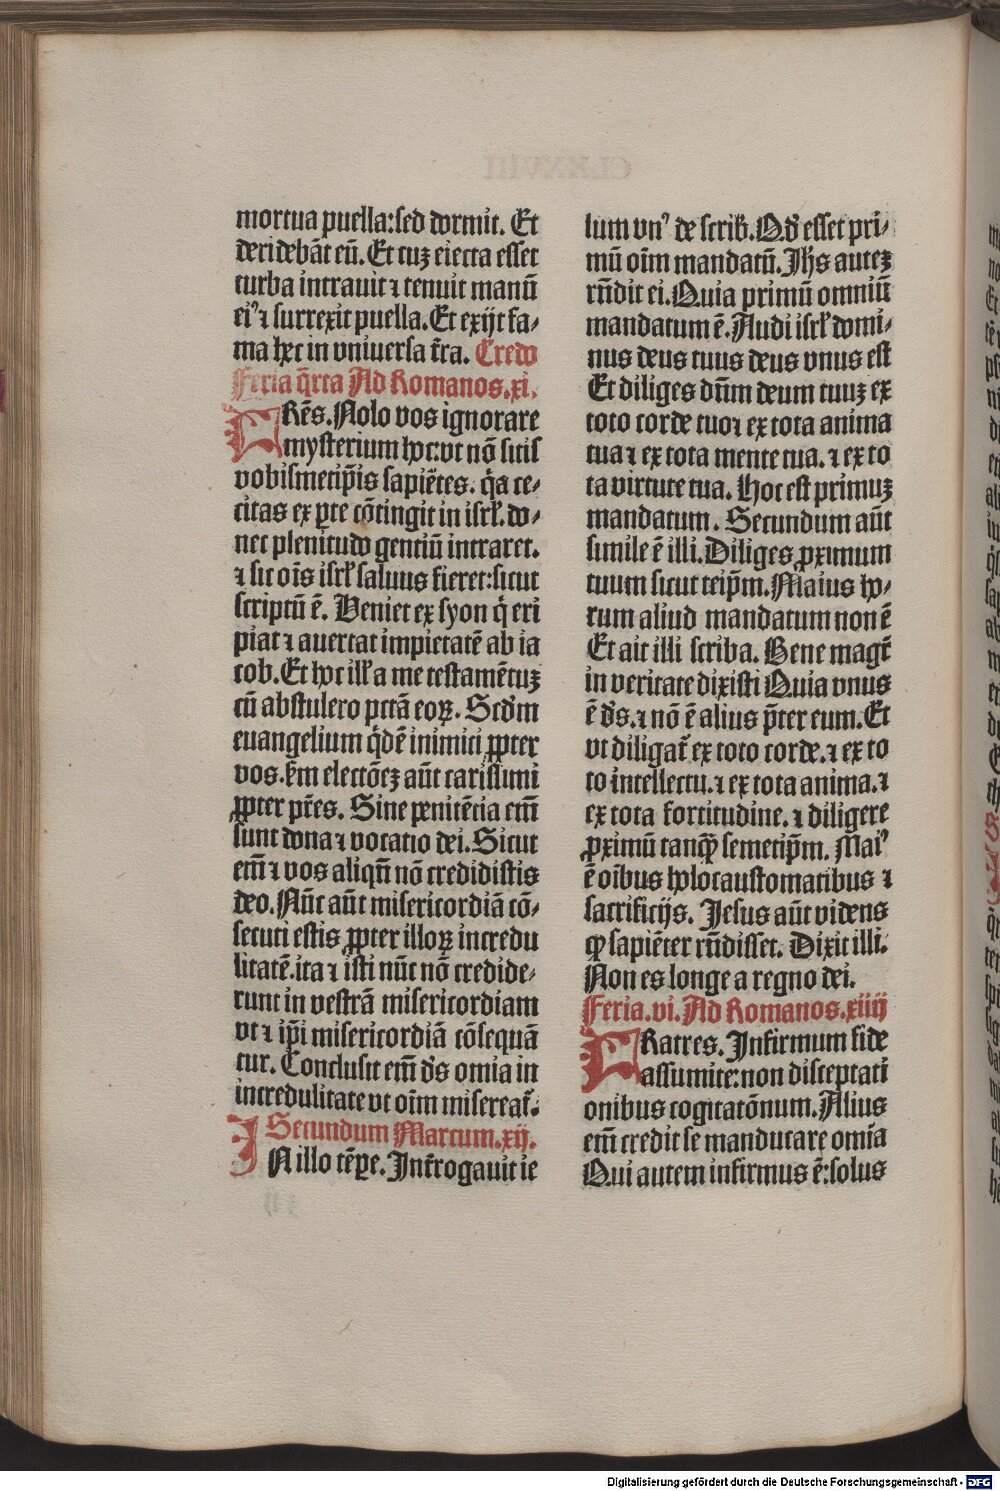 mortua puella:sed dormit. Et
deridebāt eū. Et cuʒ eiecta esset
turba intrauit ⁊ tenuit manū
eiꝰ ⁊ surrexit puella. Et exijt fa⸗
ma hec in vniuersa t̄ra. Credo
Feria q̄rta Ad Romanos.xi.
FRēs. Nolo vos ignorare
mysterium hoc:vt nō sitis
vobismetip̄is sapiētes. q̄a ce⸗
citas ex ꝑte cōtingit in isrł. do⸗
nec plenitudo gentiū intraret.
⁊ sic oīs isrł saluus fieret:sicut
scriptū ē. Veniet ex syon q̄ eri
piat ⁊ auertat impietatē ab ia
cob. Et hoc illꝭ a me testamētuʒ
cū abstulero pctā eoꝝ. Scd̄m
euangelium q̄dē inimici ꝓpter
vos. s̄m electōeʒ aūt carissimi
ꝓpter pr̄es. Sine penitētia em̄
sunt dona ⁊ vocatio dei. Sicut
em̄ ⁊ vos aliqn̄ nō credidistis
deo. Nūc aūt misericordiā cō⸗
secuti estis ꝓpter illoꝝ incredu
litatē. ita ⁊ isti nūc nō credide⸗
runt in vestrā misericordiam
vt ⁊ ip̄i misericordiā cōsequā
tur. Conclusit em̄ d̄s omīa in
incredulitate vt oīm misereat̄.
Secundum Marcum.xij.
IN illo tēpe. Int̄rogauit ie
sum vnꝰ de scrib̄. Qd̄ esset pri⸗
mū oīm mandatū. Jh̄s auteʒ
rn̄dit ei. Quia primū omniū
mandatum ē. Audi isrł domi⸗
nus deus tuus deus vnus est
Et diliges dn̄m deum tuuʒ ex
toto corde tuo ⁊ ex tota anima
tua ⁊ ex tota mente tua. ⁊ ex to
ta virtute tua. Hoc est primuʒ
mandatum. Secundum aūt
simile ē illi. Diliges ꝓximum
tuum sicut teip̄m. Maius ho⸗
rum aliud mandatum non ē
Et ait illi scriba. Bene magr̄
in veritate dixisti Quia vnus
ē d̄s. ⁊ nō ē alius p̄ter eum. Et
vt diligat̄ ex toto corde. ⁊ ex to
to intellectu. ⁊ ex tota anima. ⁊
ex tota fortitudine. ⁊ diligere
ꝓximū tanqꝫ semetip̄m. Maiꝰ
ē oībus holocaustomatibus ⁊
sacrificijs. Jesus aūt videns
ꝙ sapiēter rn̄disset. Dixit illi.
Non es longe a regno dei.
Feria.vi. Ad Romanos.xiiij
FRatres. Infirmum fide
assumite:non disceptati
onibus cogitatōnum. Alius
em̄ credit se manducare omīa
Qui autem infirmus ē:solus
Digitalisierung gefördert durch die Deutsche Forschungsgemeinschaft - DFG